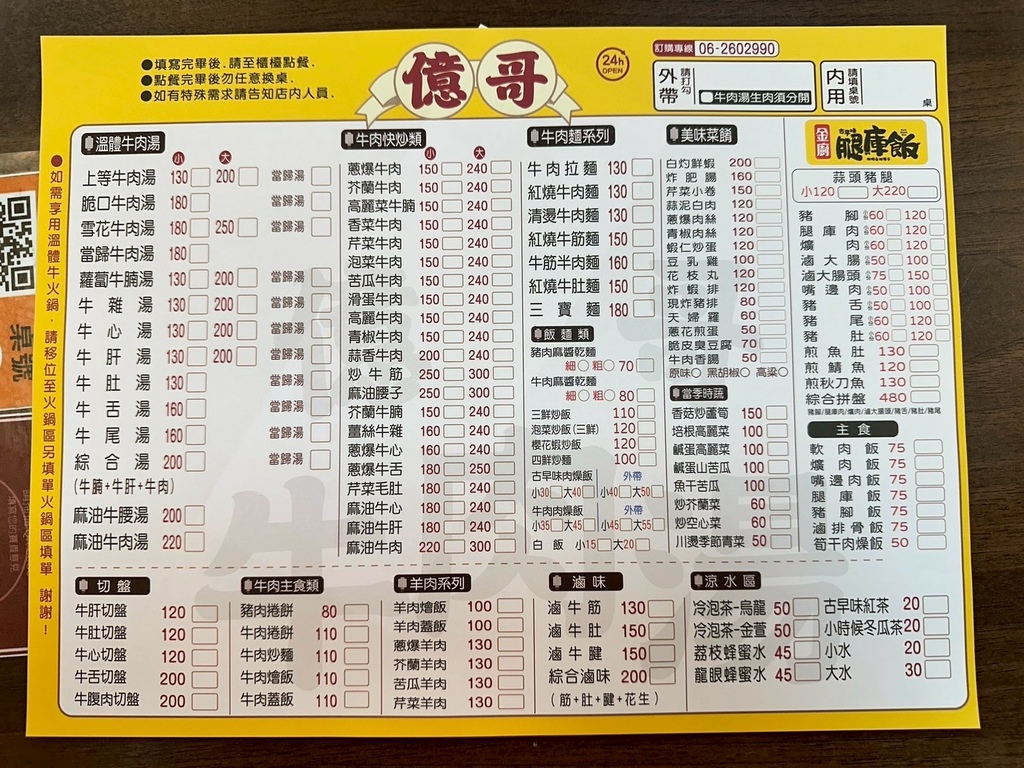 ●填寫完畢後.請至櫃檯點餐.
●點餐完畢後勿任意換桌.
●如有特殊需求請告知店内人員.
億哥
24h OPEN
訂購專線 06-2602990
外帶 請打勾 牛肉湯生肉須分開
内用 請填桌號 桌
●如需享用溫體牛火鍋.請移位至火鍋區另填單火鍋區填單 謝謝!
桌號
溫體牛肉湯
小 大
上等牛肉湯 130 200 當歸湯
脆口牛肉湯 180 當歸湯
雪花牛肉湯 180 250 當歸湯
當歸牛肉湯 180
蘿蔔牛腩湯 130 200 當歸湯
牛雜湯 130 200 當歸湯
牛心湯 130 200 當歸湯
牛肝湯 130 200 當歸湯
牛肚湯 130 當歸湯
牛舌湯 160 當歸湯
牛尾湯 160 當歸湯
綜合湯 200 當歸湯
(牛腩+牛肝+牛肉)
麻油牛腰湯 200
麻油牛肉湯 220
牛肉快炒類
小 大
蔥爆牛肉 150 240
芥蘭牛肉 150 240
高麗菜牛腩 150 240
香菜牛肉 150 240
芹菜牛肉 150 240
泡菜牛肉 150 240
苦瓜牛肉 150 240
滑蛋牛肉 150 240
高麗牛肉 150 240
青椒牛肉 150 240
蒜香牛肉 200 240
炒牛筋 250 300
麻油腰子 250 300
芥蘭牛腩 150 240
薑絲牛雜 160 240
蔥爆牛心 160 240
蔥爆牛舌 180 250
芹菜毛肚 180 240
麻油牛心 180 240
麻油牛肝 180 240
麻油牛肉 220 300
牛肉麵系列
牛肉拉麵 130
紅燒牛肉麵 130
清燙牛肉麵 130
紅燒牛筋麵 150
牛筋半肉麵 160
紅燒牛肚麵 150
三寶麵 180
飯麵類
豬肉麻醬乾麵
細○ 粗○ 70
牛肉麻醬乾麵
細○ 粗○ 80
三鮮炒飯 110
泡菜炒飯(三鮮) 120
櫻花蝦炒飯 120
四鮮炒麵 100
古早味肉燥飯 外帶
小30 大40 小40 大50
牛肉肉燥飯 外帶
小35 大45 小45 大55
白飯 小15 大20
美味菜餚
白灼鮮蝦 200
炸肥腸 160
芹菜小卷 150
蒜泥白肉 120
蔥爆肉絲 120
青椒肉絲 120
蝦仁炒蛋 120
豆乳雞 100
花枝丸 120
炸蝦排 120
現炸豬排 80
天婦羅 60
蔥花煎蛋 50
脆皮臭豆腐 70
牛肉香腸 50
原味○ 黑胡椒○ 高粱○
當季時蔬
香菇炒蘆筍 150
培根高麗菜 100
鹹蛋高麗菜 100
鹹蛋山苦瓜 100
魚干苦瓜 100
炒芥蘭菜 60
炒空心菜 60
川燙季節青菜 50
金廚 古早味 腿庫飯
蒜頭豬腿
小120 大220
豬腳 60 120
腿庫肉 60 120
爌肉 60 120
滷大腸 50 100
滷大腸頭 75 150
嘴邊肉 50 100
豬舌 50 100
豬尾 60 120
豬肚 60 120
煎魚肚 130
煎鯖魚 120
煎秋刀魚 130
綜合拼盤 480
豬腳/腿庫肉/爌肉/滷大腸頭/豬舌/豬肚/豬尾
主食
軟肉飯 75
爌肉飯 75
嘴邊肉飯 75
腿庫飯 75
豬腳飯 75
滷排骨飯 75
筍干肉燥飯 50
切盤
牛肝切盤 120
牛肚切盤 120
牛心切盤 120
牛舌切盤 200
牛腹肉切盤 200
牛肉主食類
豬肉捲餅 80
牛肉捲餅 110
牛肉炒麵 110
牛肉燴飯 110
牛肉蓋飯 110
羊肉系列
羊肉燴飯 100
羊肉蓋飯 100
蔥爆羊肉 130
芥蘭羊肉 130
苦瓜羊肉 130
芹菜羊肉 130
滷味
滷牛筋 130
滷牛肚 150
滷牛腱 150
綜合滷味 200
(筋+肚+腱+花生)
涼水區
冷泡茶-烏龍 50 古早味紅茶 20
冷泡茶-金萱 50 小時候冬瓜茶 20
荔枝蜂蜜水 45 小水 20
龍眼蜂蜜水 45 大水 30